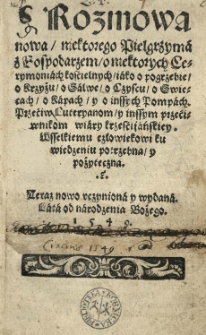 Rozmowa
nowa / niektorego Pielgrzyma
z Gospodarzem / o niektorych Ce-
rymoniach kościelnych / iako o pogrzebie /
o Krzyżu / o Salwe / o Czyscu / o Swie-
cach / o Kapach / y o inssych Pompach.
Przećiw Luteryanom / y inssym przeći-
wnikom wiáry krześcijańskiey.
Wsselkiemu człowiekowi ku
wiedzeniu potrzebna / y
pożyteczna.
Teraz nowo vczyniona y wydaná.
Látá od národzenia Bożego.
1549.